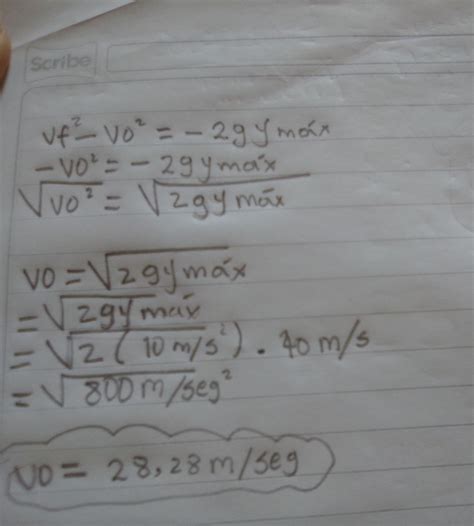 Scribe
Vf² - Vo² = - 2gy máx
- Vo² = - 2gy máx
√Vo² = √2gy máx
Vo = √2gy máx
= √2gy máx
= √2 (10 m/s²) . 40 m/s
= √800 m/seg²
Vo = 28,28 m/seg